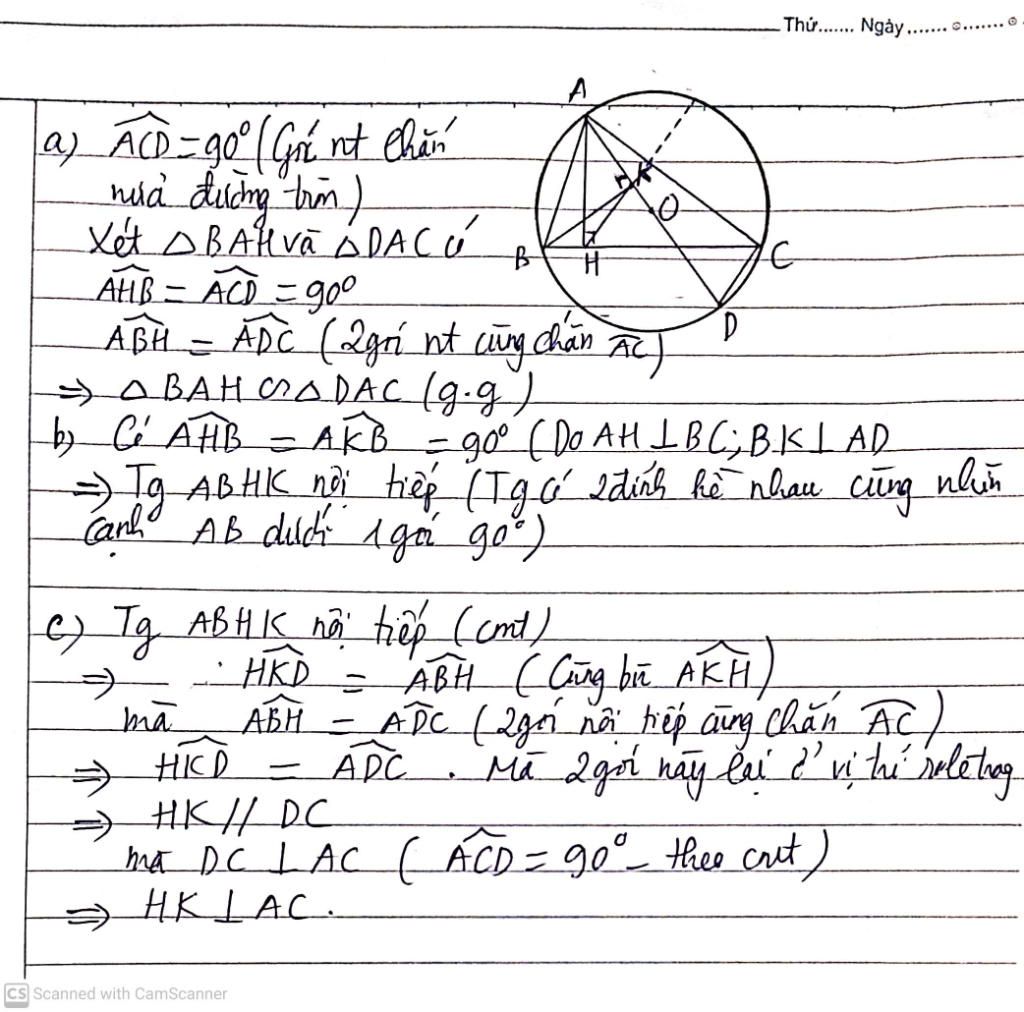 Thứ....... Ngày....... ........
A
K
O
B
H
C
D
a) ACD = 90° (Góc nt chắn
nửa đường tròn)
Xét △BAH và △DAC có
AHB = ACD = 90°
ABH = ADC (2góc nt cùng chắn AC)
=> △BAH ∽ △DAC (g.g)
b) Có AHB = AKB = 90° (Do AH ⊥ BC; BK ⊥ AD
=> Tg ABHK nội tiếp (Tg có 2 đỉnh kề nhau cùng nhìn
cạnh AB dưới 1 góc 90°)
c) Tg ABHK nội tiếp (cmt)
=> HKD = ABH (Cùng bù AKH)
mà ABH = ADC (2góc nội tiếp cùng chắn AC)
=> HKD = ADC . Mà 2 góc này lại ở vị trí
=> HK // DC
mà DC ⊥ AC ( ACD = 90° - theo cmt)
=> HK ⊥ AC.
CS Scanned with CamScanner